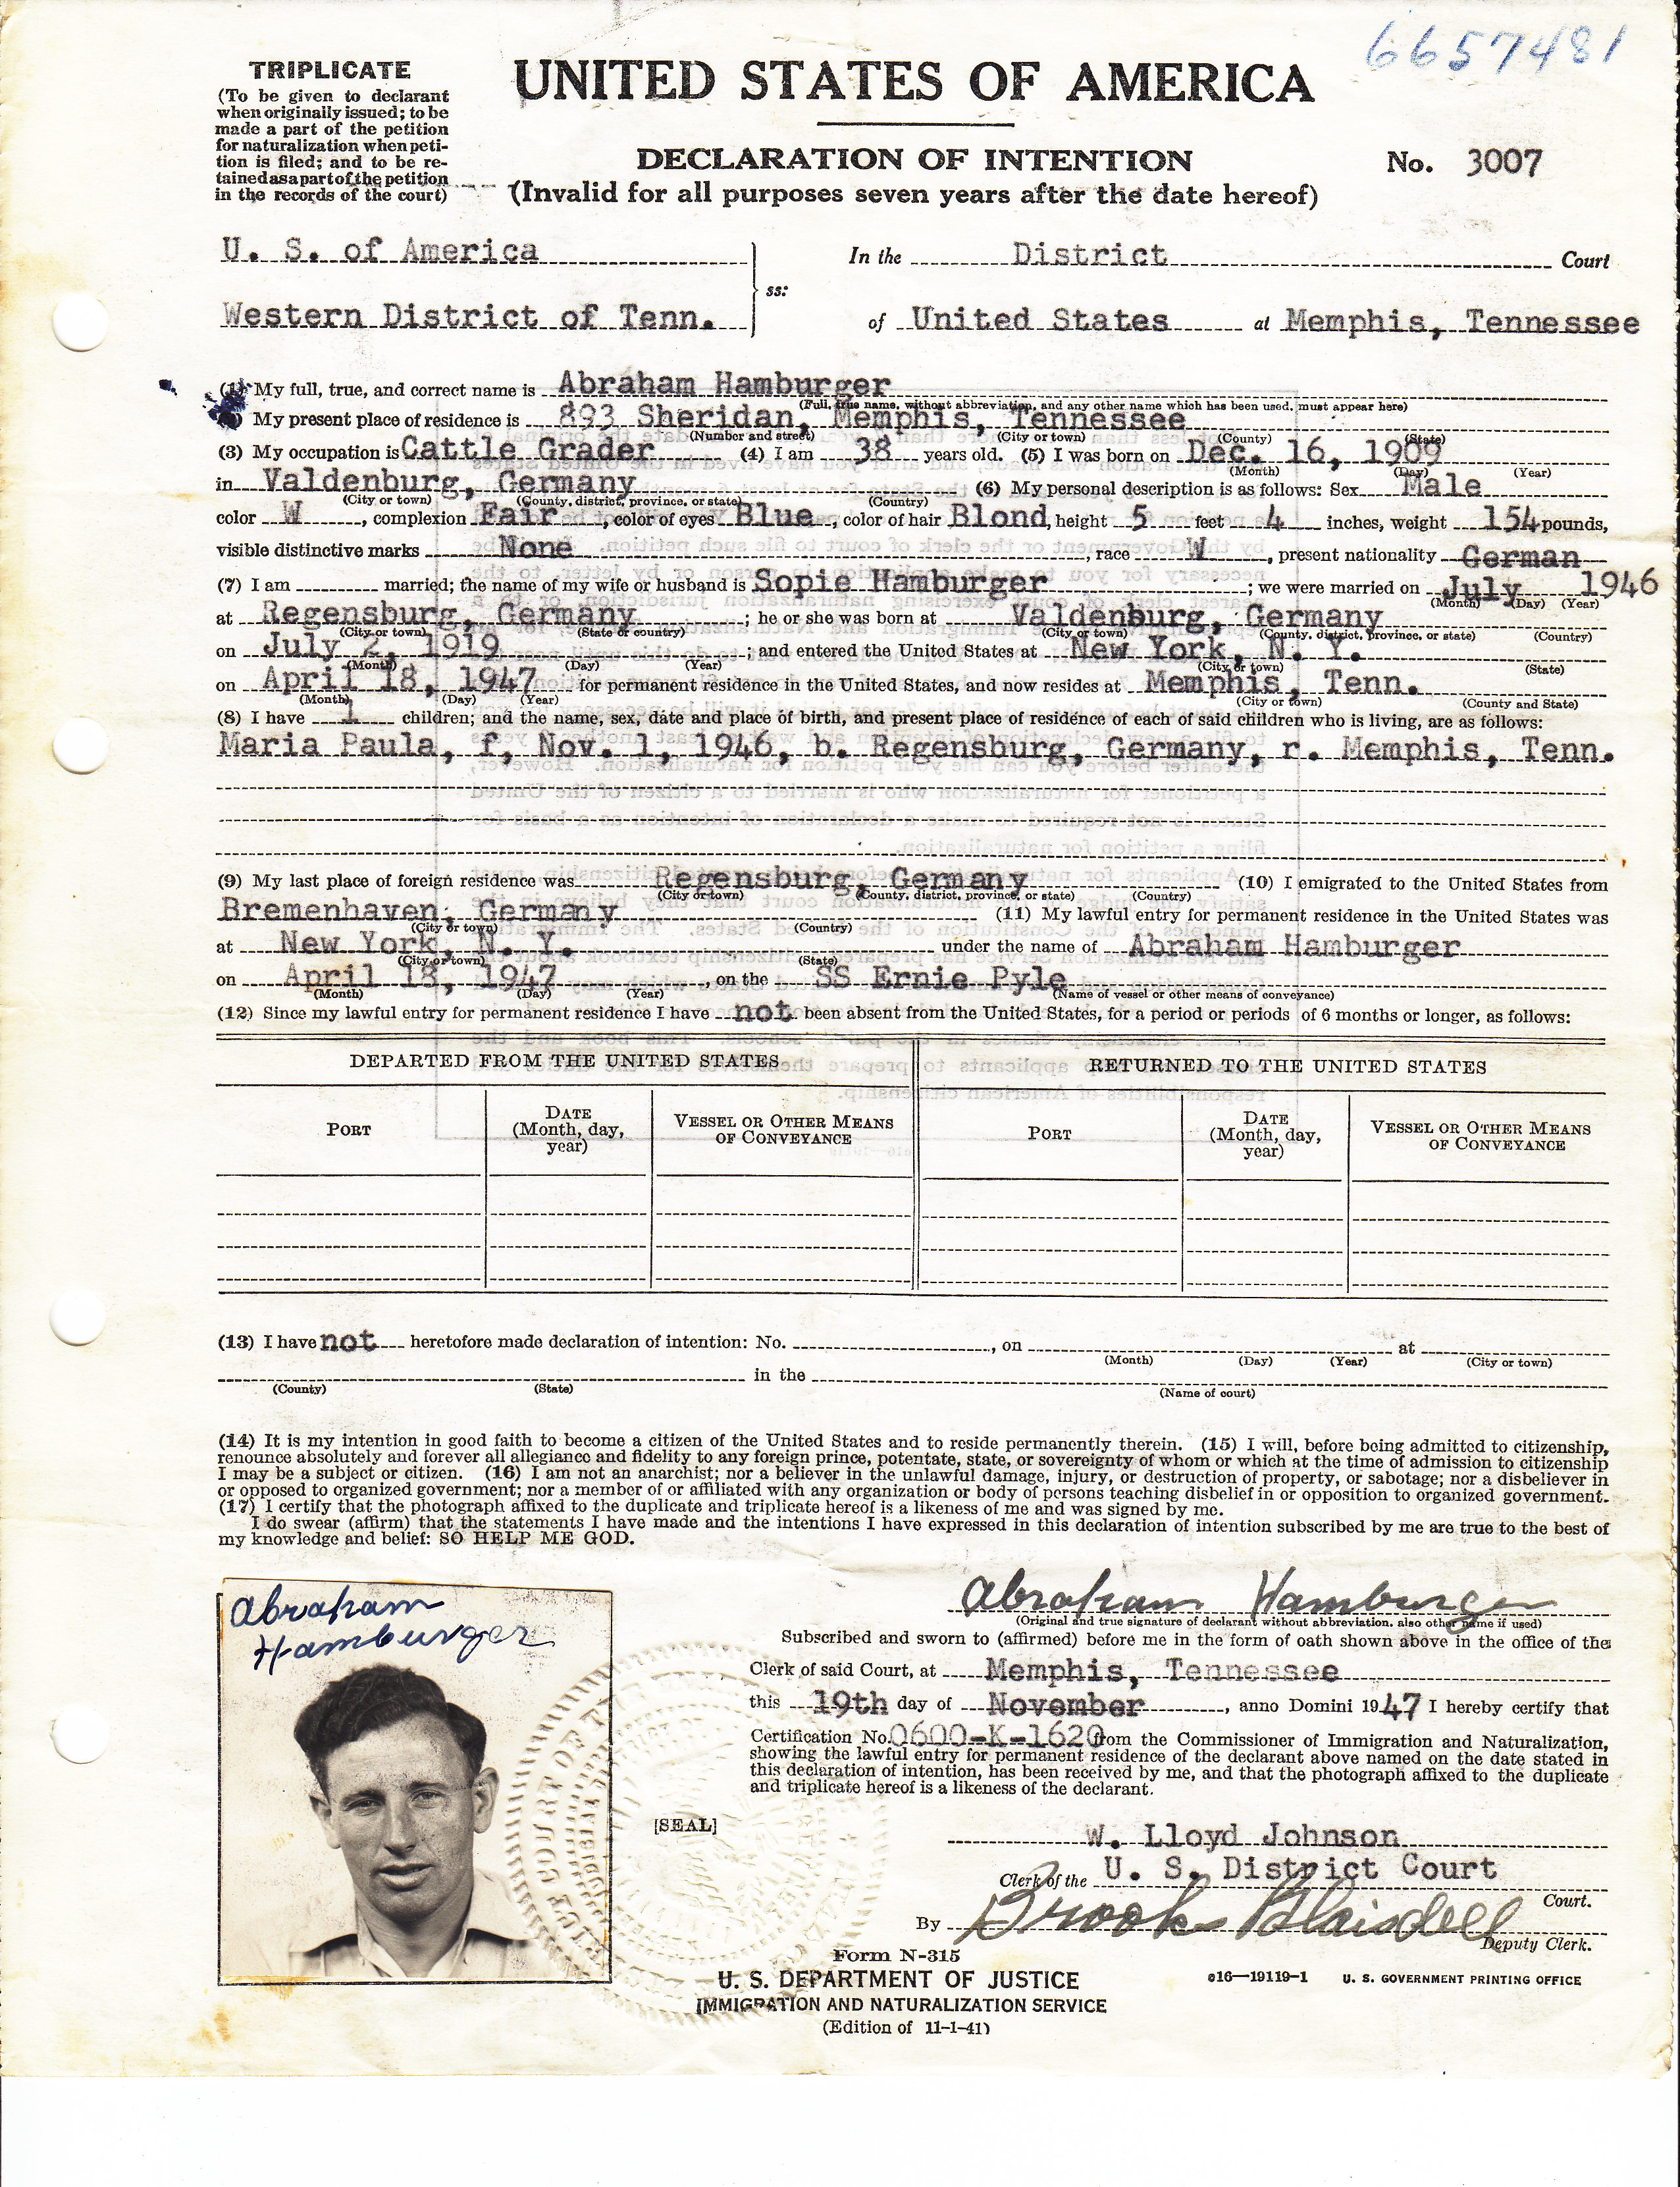 6657481
TRIPLICATE
(To be given to declarant
when originally issued; to be
made a part of the petition
for naturalization when peti-
tion is filed; and to be re-
tained as a part of the petition
in the records of the court)
UNITED STATES OF AMERICA
DECLARATION OF INTENTION
(Invalid for all purposes seven years after the date hereof)
No. 3007
U. S. of America
Western District of Tenn.
ss:
In the District Court
of United States at Memphis, Tennessee
(1) My full, true, and correct name is Abraham Hamburger
(Full, true name, without abbreviation, and any other name which has been used, must appear here)
My present place of residence is 893 Sheridan, Memphis, Tennessee
(Number and street) (City or town) (County) (State)
(3) My occupation is Cattle Grader (4) I am 38 years old. (5) I was born on Dec. 16, 1909
(Month) (Day) (Year)
in Valdenburg, Germany (6) My personal description is as follows: Sex Male
(City or town) (County, district, province, or state) (Country)
color W, complexion Fair, color of eyes Blue, color of hair Blond, height 5 feet 4 inches, weight 154 pounds,
visible distinctive marks None, race W, present nationality German
(7) I am married; the name of my wife or husband is Sopie Hamburger; we were married on July 1946
(Month) (Day) (Year)
at Regensburg, Germany; he or she was born at Valdenburg, Germany
(City or town) (State or country) (City or town) (County, district, province, or state) (Country)
on July 2, 1919; and entered the United States at New York, N. Y.
(Month) (Day) (Year) (City or town) (State)
on April 18, 1947 for permanent residence in the United States, and now resides at Memphis, Tenn.
(Month) (Day) (Year) (City or town) (County and State)
(8) I have 1 children; and the name, sex, date and place of birth, and present place of residence of each of said children who is living, are as follows:
Maria Paula, f, Nov. 1, 1946, b. Regensburg, Germany, r. Memphis, Tenn.
(9) My last place of foreign residence was Regensburg, Germany (10) I emigrated to the United States from
(City or town) (County, district, province, or state) (Country)
Bremenhaven, Germany (11) My lawful entry for permanent residence in the United States was
(City or town) (Country)
at New York, N. Y. under the name of Abraham Hamburger
(City or town) (State)
on April 18, 1947, on the SS Ernie Pyle
(Month) (Day) (Year) (Name of vessel or other means of conveyance)
(12) Since my lawful entry for permanent residence I have not been absent from the United States, for a period or periods of 6 months or longer, as follows:
DEPARTED FROM THE UNITED STATES RETURNED TO THE UNITED STATES
PORT DATE (Month, day, year) VESSEL OR OTHER MEANS OF CONVEYANCE PORT DATE (Month, day, year) VESSEL OR OTHER MEANS OF CONVEYANCE
(13) I have not heretofore made declaration of intention: No. , on at
(Month) (Day) (Year) (City or town)
in the
(County) (State) (Name of court)
(14) It is my intention in good faith to become a citizen of the United States and to reside permanently therein. (15) I will, before being admitted to citizenship,
renounce absolutely and forever all allegiance and fidelity to any foreign prince, potentate, state, or sovereignty of whom or which at the time of admission to citizenship
I may be a subject or citizen. (16) I am not an anarchist; nor a believer in the unlawful damage, injury, or destruction of property, or sabotage; nor a disbeliever in
or opposed to organized government; nor a member of or affiliated with any organization or body of persons teaching disbelief in or opposition to organized government.
(17) I certify that the photograph affixed to the duplicate and triplicate hereof is a likeness of me and was signed by me.
I do swear (affirm) that the statements I have made and the intentions I have expressed in this declaration of intention subscribed by me are true to the best of
my knowledge and belief: SO HELP ME GOD.
Abraham
Hamburger
Abraham Hamburger
(Original and true signature of declarant without abbreviation, also other name if used)
Subscribed and sworn to (affirmed) before me in the form of oath shown above in the office of the
Clerk of said Court, at Memphis, Tennessee
this 19th day of November, anno Domini 1947 I hereby certify that
Certification No. 0600-K-1620 from the Commissioner of Immigration and Naturalization,
showing the lawful entry for permanent residence of the declarant above named on the date stated in
this declaration of intention, has been received by me, and that the photograph affixed to the duplicate
and triplicate hereof is a likeness of the declarant.
[SEAL]
W. Lloyd Johnson
Clerk of the U. S. District Court
Court.
By Brook Blaisdell
Deputy Clerk.
Form N-315
U. S. DEPARTMENT OF JUSTICE
IMMIGRATION AND NATURALIZATION SERVICE
(Edition of 11-1-41)
16—19119-1 U. S. GOVERNMENT PRINTING OFFICE